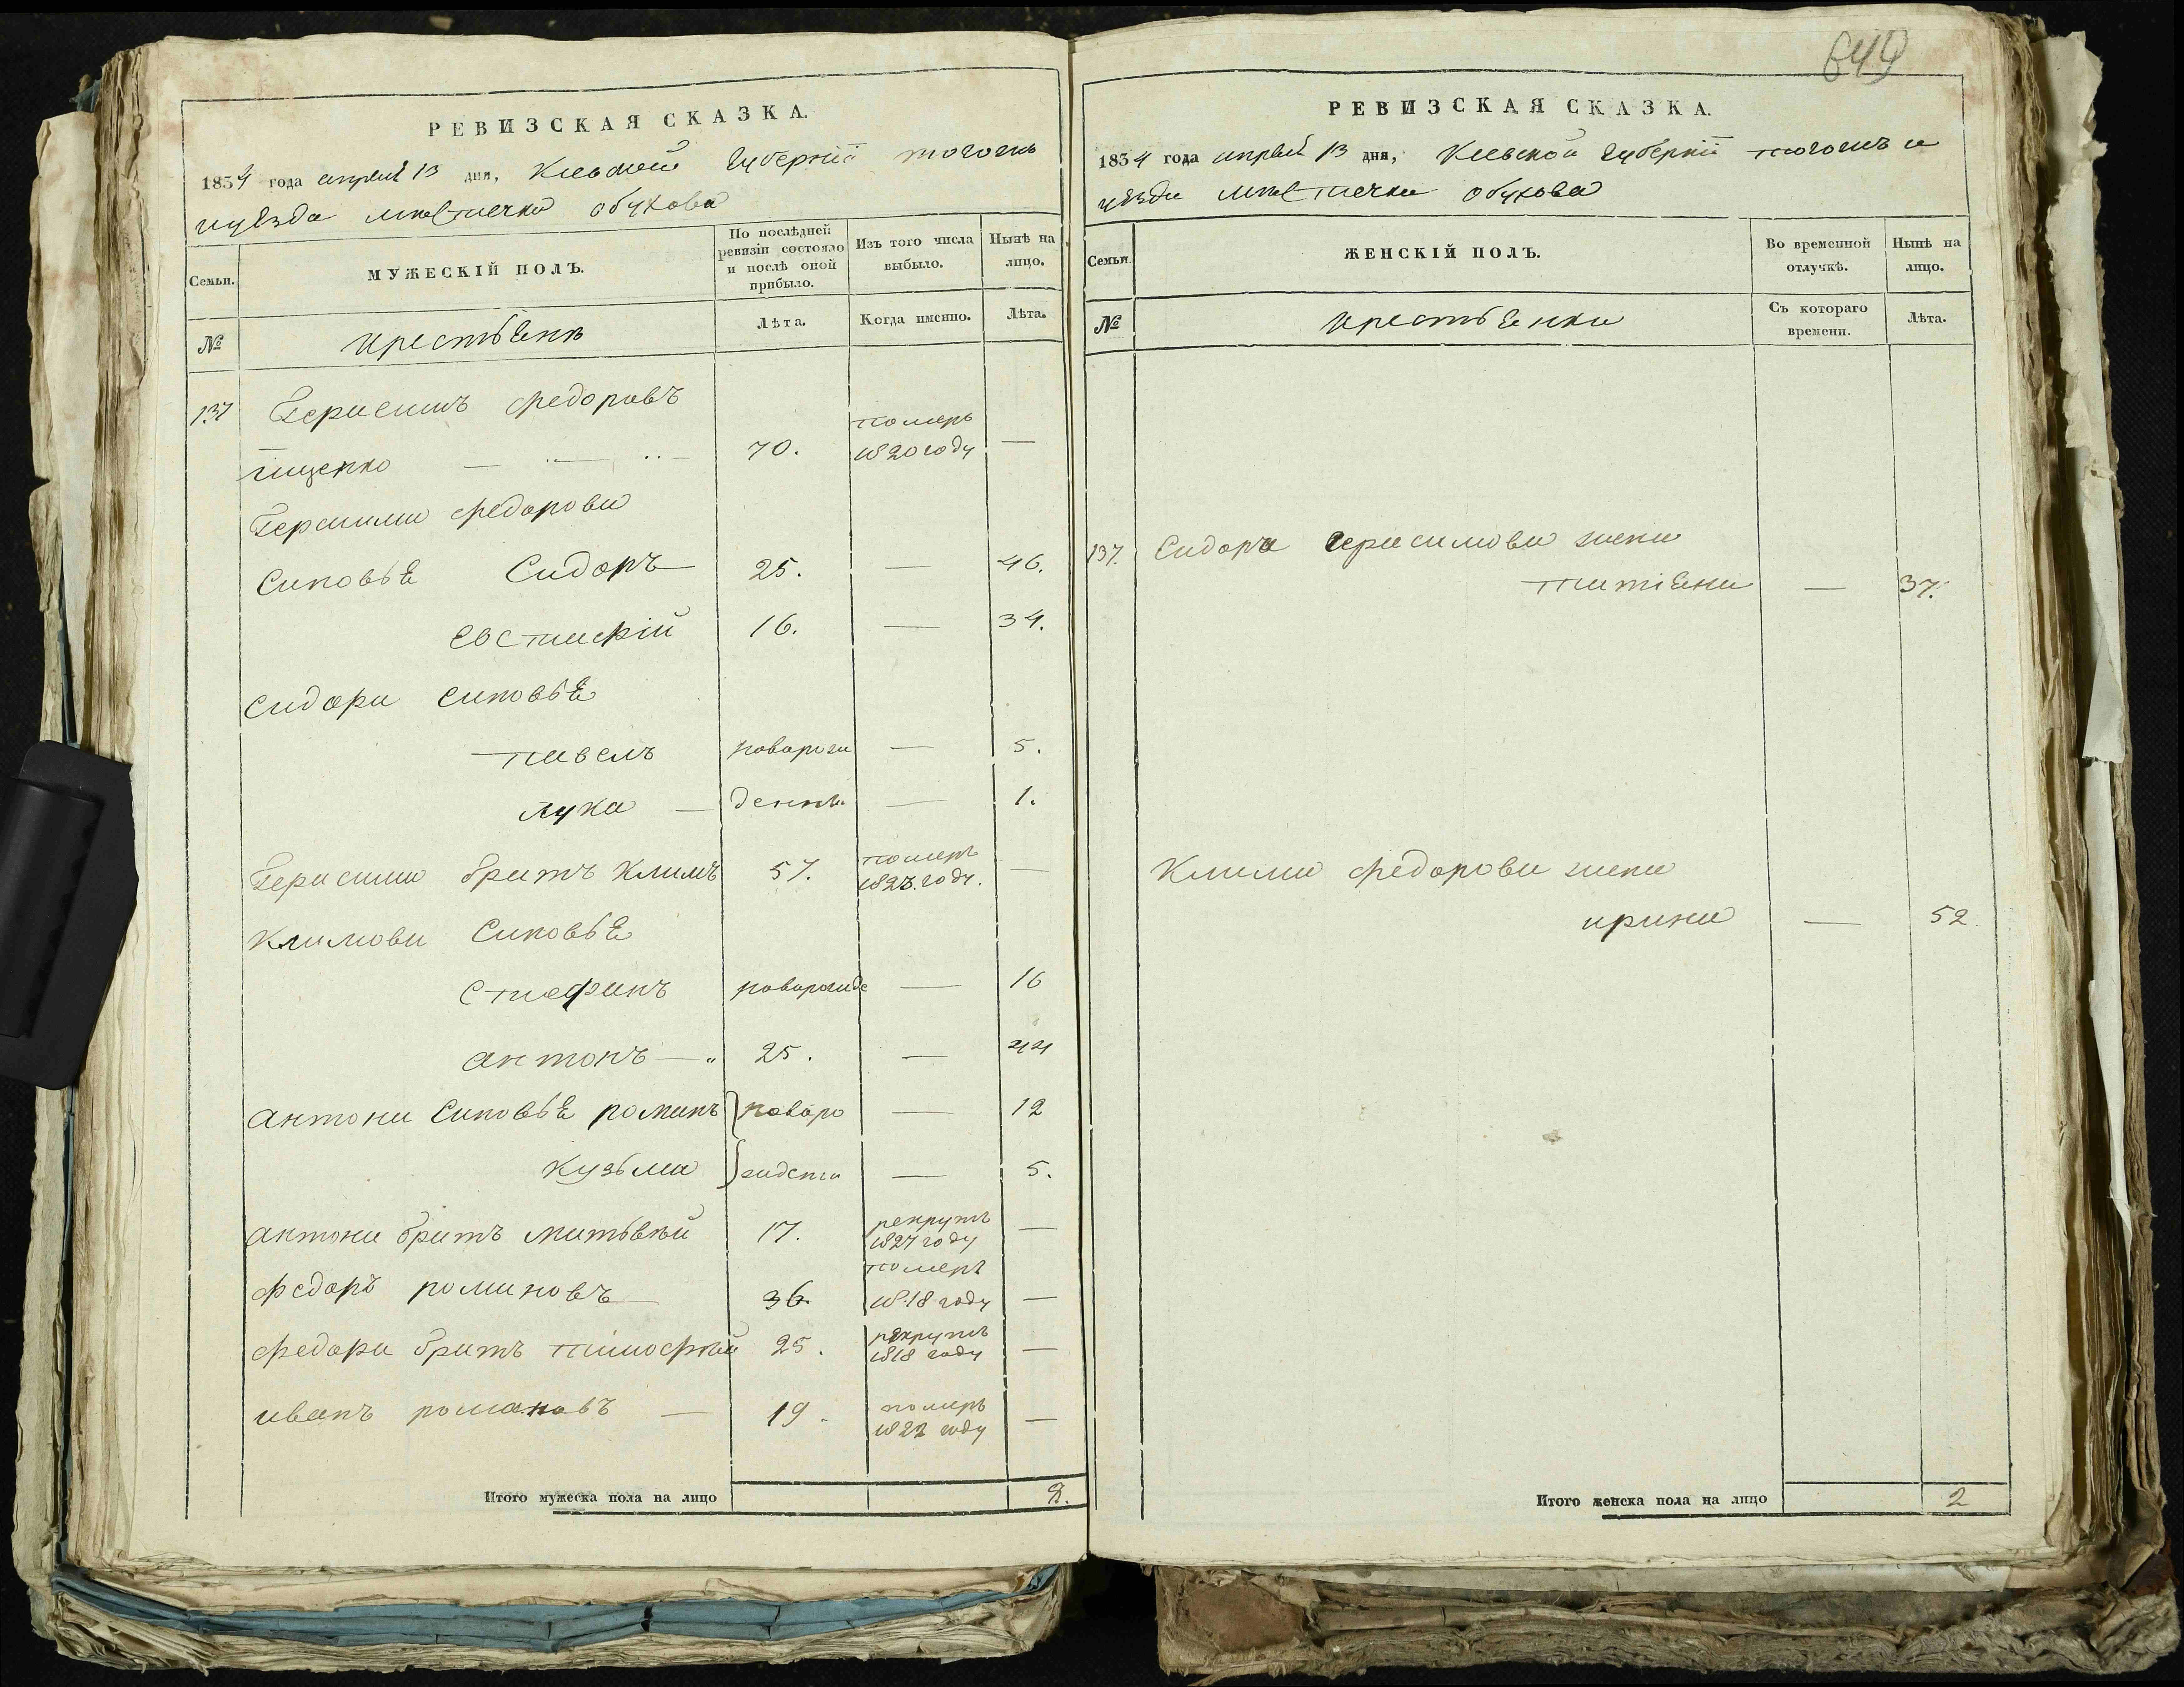 РЕВИЗСКАЯ СКАЗКА.
1834 года апреля 13 дня, Киевской Губернии тогожъ
уезда местечка обухова
Семьи.
МУЖЕСКІЙ ПОЛЪ.
По послѣдней ревизіи состояло и послѣ оной прибыло.
Изъ того числа выбыло.
Нынѣ на лицо.
№
крестьене
Лѣта.
Когда именно.
Лѣта.
137 Герасимъ федоровъ
померъ
ищенко — 70. 1820 году —
Герасима федорова
синовье Сидоръ 25. — 46.
евстафій 16. — 34.
сидора синовье
павелъ новорож — 5.
лука — денни — 1.
Герасима братъ Климъ 57. померъ 1828. году. —
климова синовье
стефанъ новорожде — 16
антонъ — 25. — 44
антона синовье романъ новоро — 12
кузьма жденни — 5.
антона братъ матвѣй 17. рекрутъ 1827 году —
федоръ романовъ 36 померъ 1818 году —
федора братъ тимофей 25. рекрутъ 1818 году —
иванъ романовъ — 19. померъ 1822 году —
Итого мужеска пола на лицо 8.
649
РЕВИЗСКАЯ СКАЗКА.
1834 года апреля 13 дня, Киевской губернии тогожъ
уезда местечка обухова
Семьи.
ЖЕНСКІЙ ПОЛЪ.
Во временной отлучкѣ.
Нынѣ на лицо.
№
крестьенки
Съ котораго времени.
Лѣта.
137. Сидора герасимова жена
татіена — 37.
Клима федорова жена
ирина — 52.
Итого женска пола на лицо 2